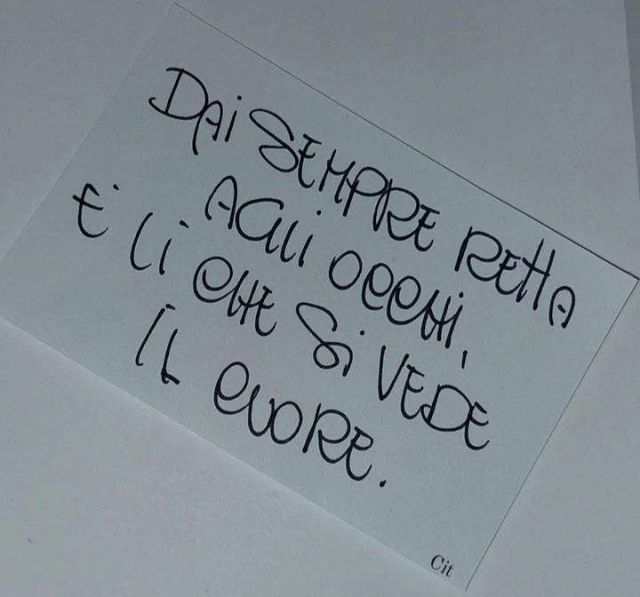 DAI SEMPRE RETTA
AGLI OCCHI,
E' LI CHE SI VEDE
IL CUORE.
Cit